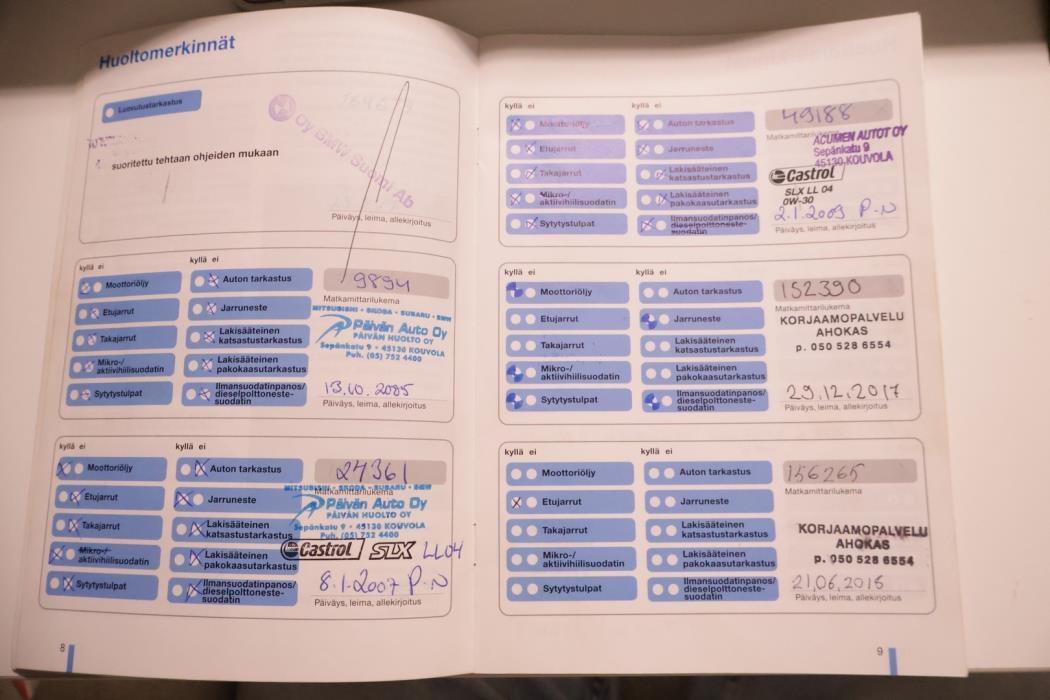 Huoltomerkinnät
Luovutustarkastus
Oy BMW Suomi Ab
suoritettu tehtaan ohjeiden mukaan
Päiväys, leima, allekirjoitus
kyllä ei
kyllä ei
Moottoriöljy
Auton tarkastus
9894
Matkamittarilukema
Etujarrut
Jarruneste
MITSUBISHI - SKODA - SUBARU - BMW
Päivän Auto Oy
PÄIVÄN HUOLTO OY
Sepänkatu 9 • 45130 KOUVOLA
Puh. (05) 752 4400
Takajarrut
Lakisääteinen
katsastustarkastus
Mikro-/
aktiivihiilisuodatin
Lakisääteinen
pakokaasutarkastus
Sytytystulpat
Ilmansuodatinpanos/
dieselpolttoneste-
suodatin
13.10.2005
Päiväys, leima, allekirjoitus
kyllä ei
kyllä ei
Moottoriöljy
Auton tarkastus
27361
Matkamittarilukema
Etujarrut
Jarruneste
MITSUBISHI - SKODA - SUBARU - BMW
Päivän Auto Oy
PÄIVÄN HUOLTO OY
Sepänkatu 9 • 45130 KOUVOLA
Puh. (05) 752 4400
Takajarrut
Lakisääteinen
katsastustarkastus
Castrol SLX LL04
Mikro-/
aktiivihiilisuodatin
Lakisääteinen
pakokaasutarkastus
Sytytystulpat
Ilmansuodatinpanos/
dieselpolttoneste-
suodatin
8.1.2007 P.N
Päiväys, leima, allekirjoitus
8
kyllä ei
kyllä ei
Moottoriöljy
Auton tarkastus
49188
Matkamittarilukema
ACUMEN AUTOT OY
Sepänkatu 9
45130 KOUVOLA
Etujarrut
Jarruneste
Takajarrut
Lakisääteinen
katsastustarkastus
Castrol
SLX LL 04
0W-30
Mikro-/
aktiivihiilisuodatin
Lakisääteinen
pakokaasutarkastus
Sytytystulpat
Ilmansuodatinpanos/
dieselpolttoneste-
suodatin
2.1.2009 P.N
Päiväys, leima, allekirjoitus
kyllä ei
kyllä ei
Moottoriöljy
Auton tarkastus
152390
Matkamittarilukema
Etujarrut
Jarruneste
KORJAAMOPALVELU
AHOKAS
p. 050 528 6554
Takajarrut
Lakisääteinen
katsastustarkastus
Mikro-/
aktiivihiilisuodatin
Lakisääteinen
pakokaasutarkastus
Sytytystulpat
Ilmansuodatinpanos/
dieselpolttoneste-
suodatin
29.12.2017
Päiväys, leima, allekirjoitus
kyllä ei
kyllä ei
Moottoriöljy
Auton tarkastus
156265
Matkamittarilukema
Etujarrut
Jarruneste
Takajarrut
Lakisääteinen
katsastustarkastus
KORJAAMOPALVELU
AHOKAS
p. 050 528 6554
Mikro-/
aktiivihiilisuodatin
Lakisääteinen
pakokaasutarkastus
Sytytystulpat
Ilmansuodatinpanos/
dieselpolttoneste-
suodatin
Päiväys, leima, allekirjoitus
9